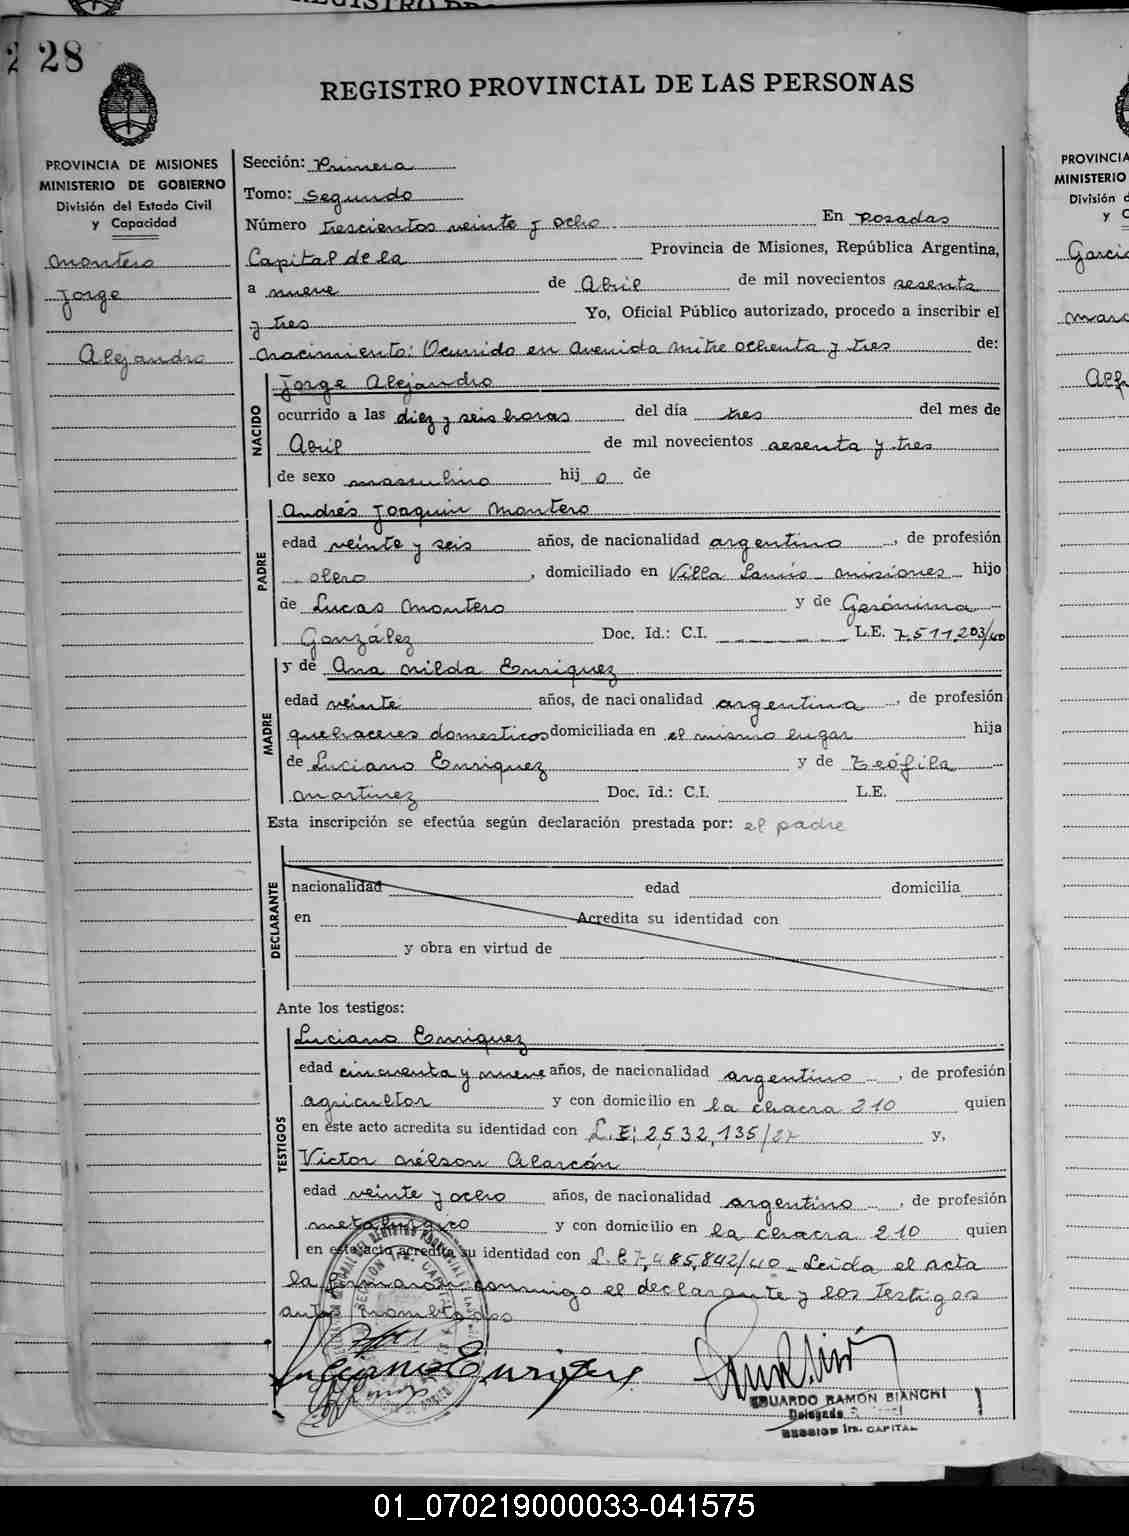 28
REGISTRO PROVINCIAL DE LAS PERSONAS
PROVINCIA DE MISIONES
MINISTERIO DE GOBIERNO
División del Estado Civil
y Capacidad
Montero
Jorge
Alejandro
Sección: Primera
Tomo: Segundo
Número trescientos veinte y ocho En Posadas
Capital de la Provincia de Misiones, República Argentina,
a nueve de Abril de mil novecientos sesenta
y tres Yo, Oficial Público autorizado, procedo a inscribir el
nacimiento: Ocurrido en Avenida Mitre ochenta y tres de:
NACIDO
Jorge Alejandro
ocurrido a las diez y seis horas del día tres del mes de
Abril de mil novecientos sesenta y tres
de sexo masculino hij o de
PADRE
Andrés Joaquin Montero
edad veinte y seis años, de nacionalidad argentino, de profesión
olero, domiciliado en Villa Lanús - Misiones hijo
de Lucas Montero y de Gerónima
González Doc. Id.: C.I. L.E. 7.511.203/40
MADRE
y de Ana Nilda Enriquez
edad veinte años, de nacionalidad argentina, de profesión
quehaceres domesticos domiciliada en el mismo lugar hija
de Luciano Enriquez y de Teófila
Martinez Doc. Id.: C.I. L.E.
Esta inscripción se efectúa según declaración prestada por: el padre
DECLARANTE
nacionalidad edad domicilia
en Acredita su identidad con
y obra en virtud de
Ante los testigos:
TESTIGOS
Luciano Enriquez
edad cincuenta y nueve años, de nacionalidad argentino, de profesión
agricultor y con domicilio en la chacra 210 quien
en este acto acredita su identidad con L.E: 2,532,135/27 y,
Victor Nélson Alarcón
edad veinte y ocho años, de nacionalidad argentino, de profesión
metalurgico y con domicilio en la chacra 210 quien
en este acto acredita su identidad con L.E 7,485,842/40 - Leida el acta
la firmaron conmigo el declarante y los testigos
antes nombrados
Luciano Enriquez
EDUARDO RAMON BIANCHI
Delegado
SECCION 1ra. CAPITAL
PROVINCIA
MINISTERIO
División d
y C
Garcia
01_070219000033-041575